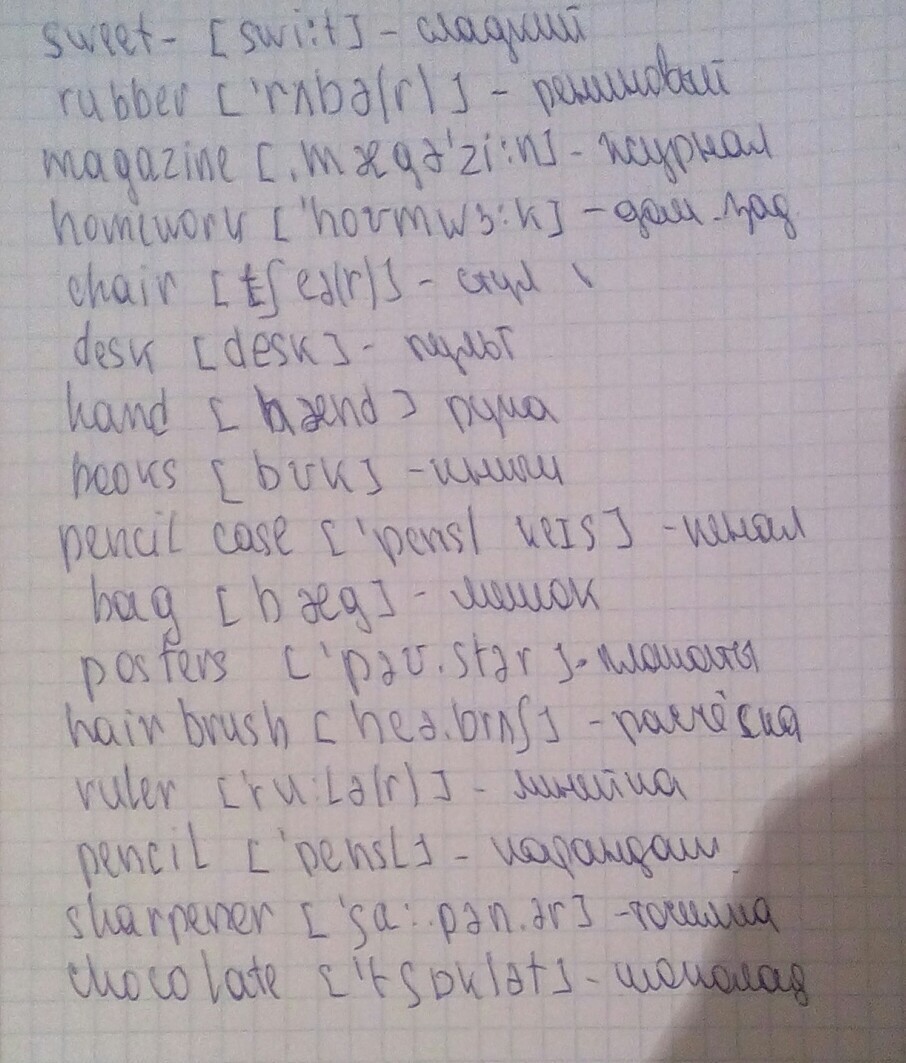 sweet - [swi:t] - сладкий
rubber ['rʌbə(r)] - резиновый
magazine [,mægə'zi:n] - журнал
homework ['hoʊmwɜ:k] - дом. зад.
chair [tʃeə(r)] - стул
desk [desk] - пульт
hand [hænd] рука
books [bʊk] - книги
pencil case ['pensl keɪs] - пенал
bag [bæg] - мешок
posters ['pəʊ.stər] - плакаты
hair brush [heə.brʌʃ] - расчёска
ruler ['ru:lə(r)] - линейка
pencil ['pensl] - карандаш
sharpener ['ʃa:.pən.ər] - точилка
chocolate ['tʃɒklət] - шоколад